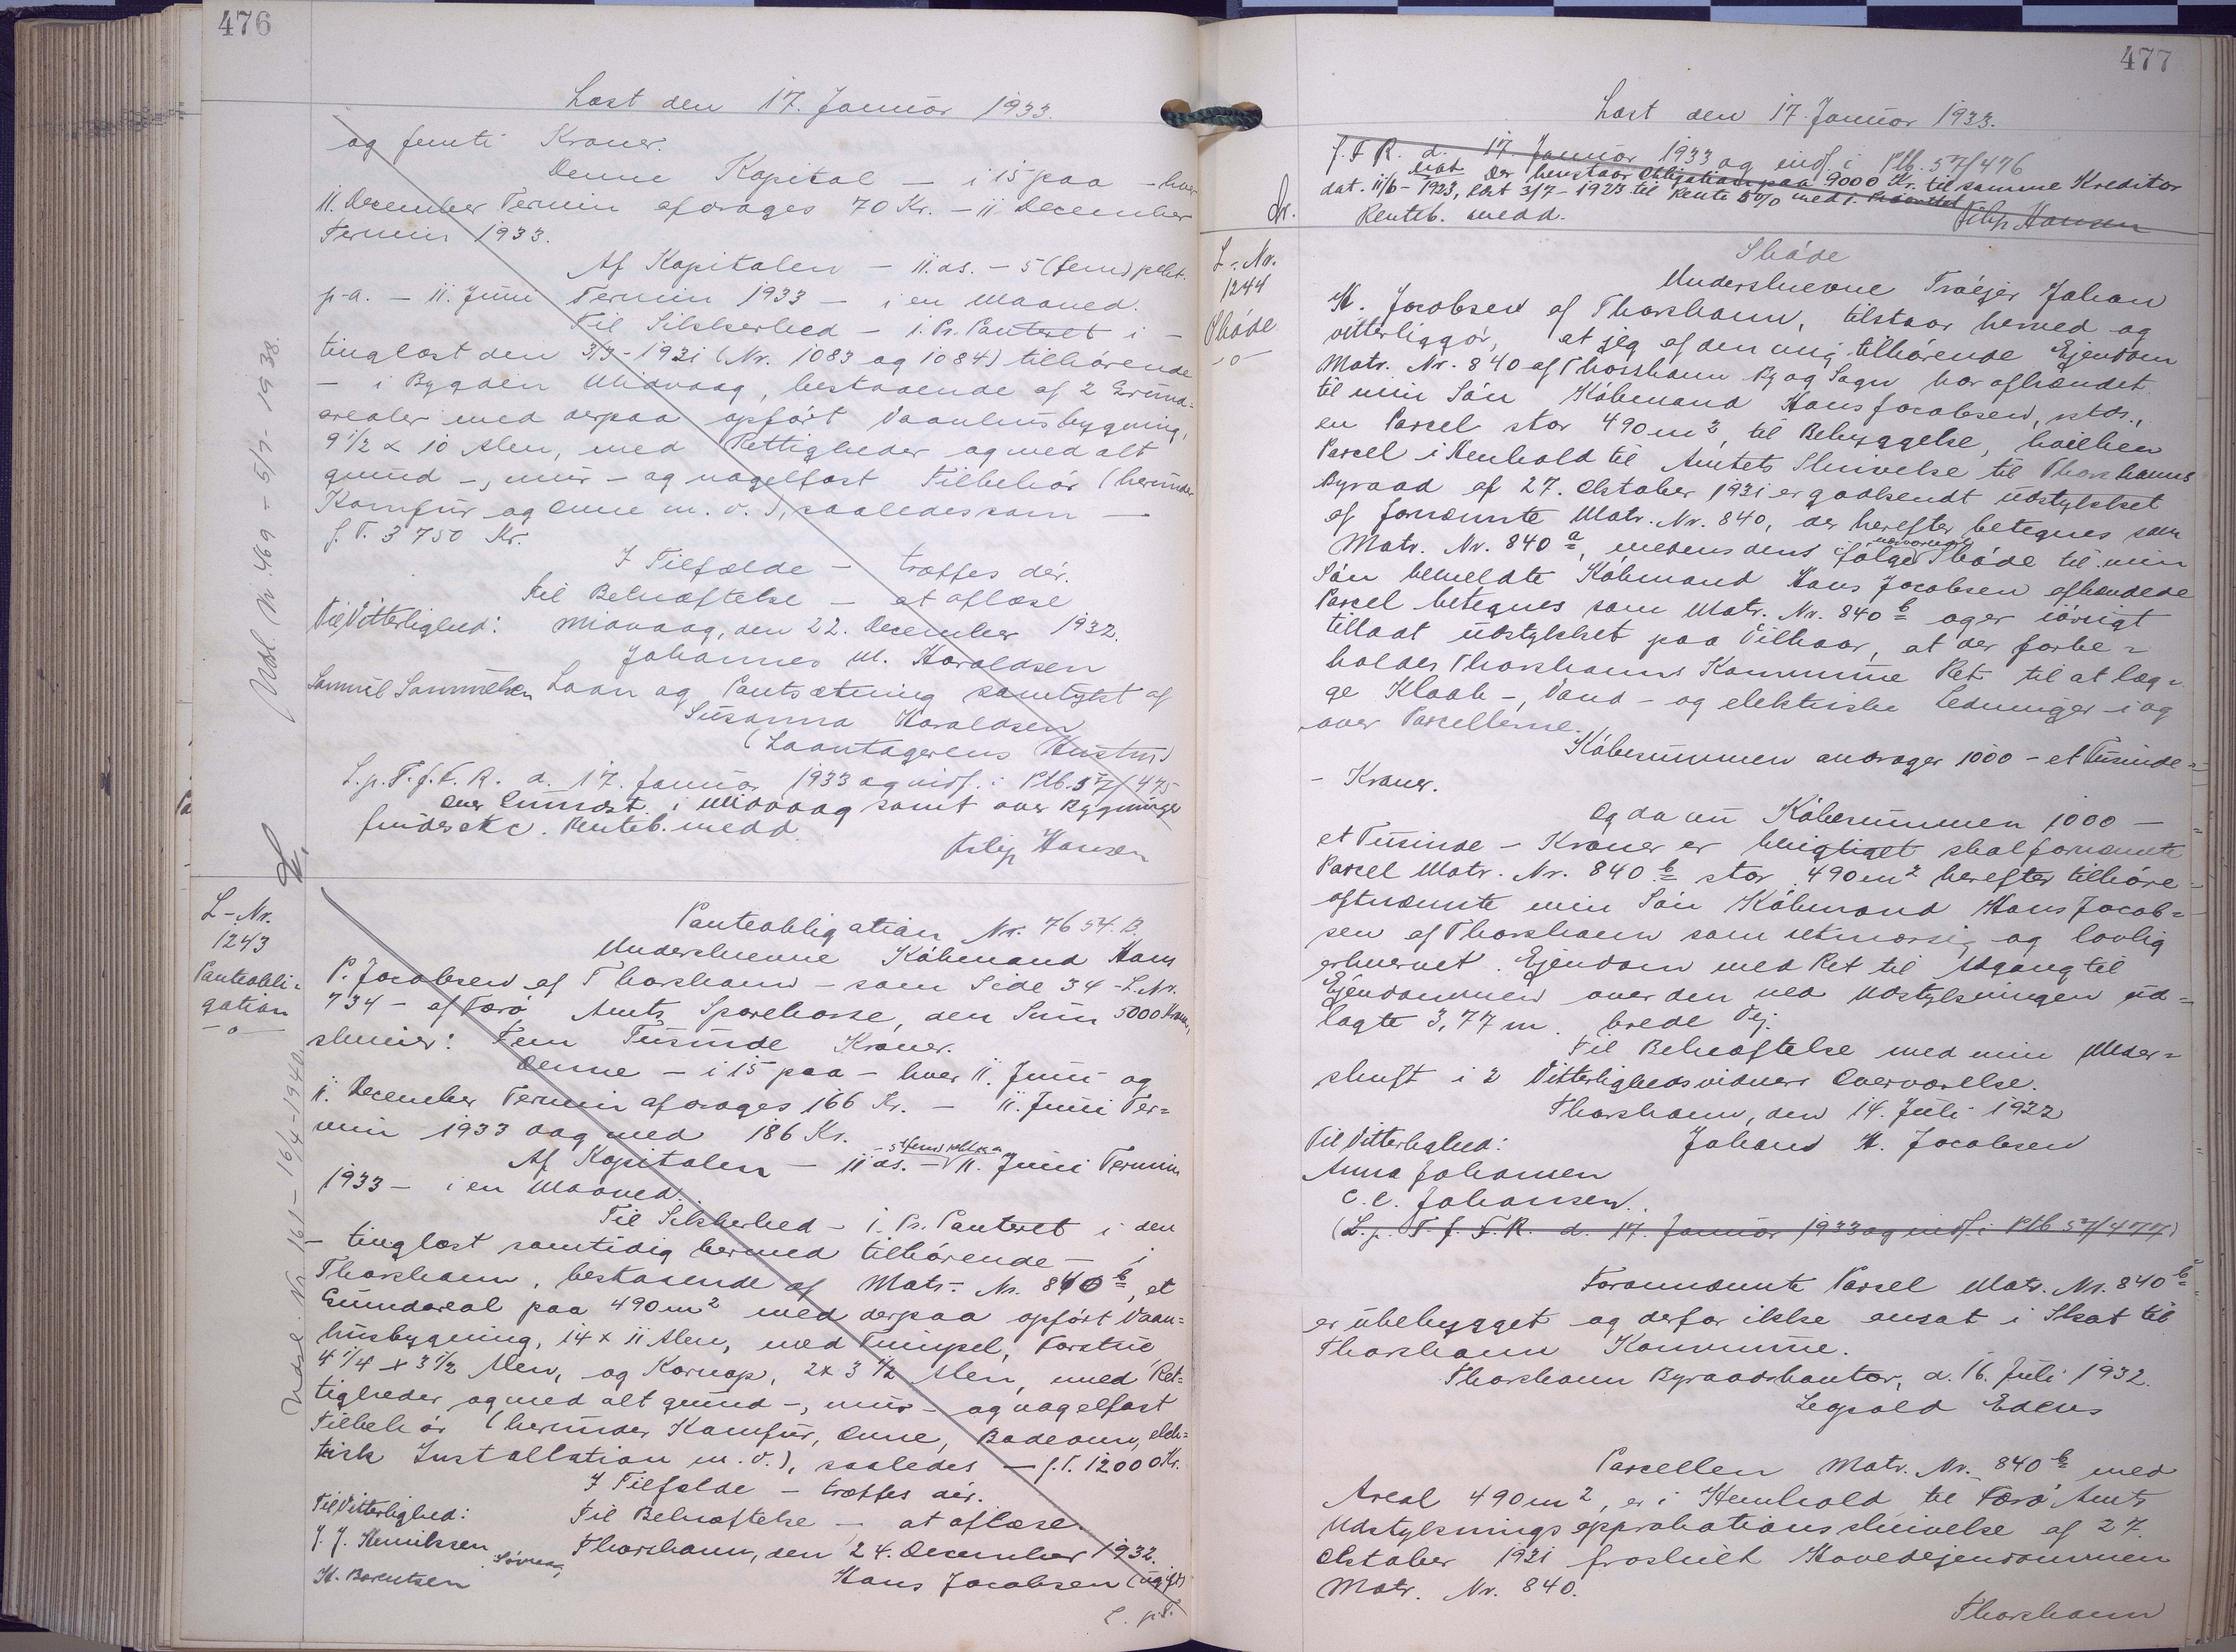 476
Læst den 17. Januar 1933.
og femti Kroner.
Denne Kapital – i 15 paa – hver
11. December Termin afdrages 70 Kr. – 11 December
Termin 1933.
Af Kapitalen – 11. ds. – 5 (fem) pCt.
p-a. – 11. Juni Termin 1933 – i en Maaned.
Til Sikkerhed – i. Pr. Panteret i –
tinglæst den 3/3-1931 (Nr. 1083 og 1084) tilhörende
– i Bygden Midvaag, bestaaende af 2 Grund=
arealer med derpaa opfört Vaaningsbygning,
9 1/2 x 10 Alen, med Rettigheder og med alt
grund-, mur- og nagelfast Tilbehör (herunder
Komfur og Ovne m. v.), saaledes som –
f. T. 3750 Kr.
I Tilfælde – træffes dér.
Til Bekræftelse – at aflæse
Til Vitterlighed: Midvaag, den 22. December 1932.
Johannes M. Haraldsen
Samuel Samuelsen Laan og Pantsætning samtykt af
Susanna Haraldsen
(Laantagerens Hustru)
L. p. T. f. F. R. d. 17. Januar 1933 og indf. i Ptb. 57/475
Renteb. medd.
Filip Hansen
Udsl. Nr. 469 – 5/7 – 1938.
L-Nr.
1243
Panteobli=
gation
-o-
Panteobligation Nr. 7654. B.
Underskrevne Köbmand Hans
P. Jacobsen af Thorshavn – som Side 34 – L. Nr.
734 – af Færö Amts Sparekasse, den Sum 5000 Kroner,
skriver: Fem Tusinde Kroner.
Denne – i 15 paa – hver 11. Juni og
11. December Termin afdrages 166 Kr. – 11. Juni Ter=
min 1933 dog med 186 Kr.
Af Kapitalen – 11 ds. – 5 (fem) pCt p. a. 11. Juni Termin
1933 – i en Maaned.
Til Sikkerhed – i. Pr. Panteret i den
– tinglæst samtidig hermed tilhörende – i
Thorshavn, bestaaende af Matr. Nr. 840 b, et
Grundareal paa 490 m2 med derpaa opfört Vaan=
husbygning, 14 x 11 Alen, med Timpel, Forstue
4 1/4 x 3 1/2 Alen, og Karnap, 2 x 3 1/2 Alen, med Ret=
tigheder og med alt grund-, mur- og nagelfast
Tilbehör (herunder Komfur, Ovne, Badeovn, elek=
trisk Installation m. v.), saaledes – f. T. 12000 Kr.
I Tilfælde – træffes dér.
Til Vitterlighed: Til Bekræftelse – at aflæse.
J. J. Henriksen Thorshavn, den 24. December 1932.
H. Berentsen Hans Jacobsen (ugift)
L. p. T.
Udsl. Nr. 161 – 16/4 – 1940
477
Læst den 17. Januar 1933.
f. F. R. d. 17. Januar 1933 og indf. i Ptb. 57/476
Der henstaar Obligation paa 9000 Kr. til samme Kreditor
dat. 11/6 – 1923, læst 3/7 – 1923 til Rente 5 % med 1. Prioritet
Renteb. medd. Filip Hansen
L-Nr.
1244
Sköde
-o-
Sköde
Underskrevne Tröjer Johan
H. Jacobsen af Thorshavn, tilstaar herved og
vitterliggör, at jeg af den mig tilhörende Ejendom
Matr. Nr. 840 af Thorshavn By og Sogn har afhændet
til min Sön Köbmand Hans Jacobsen, stds.,
en Parcel stor 490 m2, til Bebyggelse, hvilken
Parcel i Henhold til Amtets Skrivelse til Thorshavns
Byraad af 27. Oktober 1931 er godkendt udstykket
af fornævnte Matr. Nr. 840, der herefter betegnes som
Matr. Nr. 840 a, medens den i fölge nærværende Sköde til min
Sön bemeldte Köbmand Hans Jacobsen afhændede
Parcel betegnes som Matr. Nr. 840 b og er iövrigt
tilladt udstykket paa Vilkaar, at der forbe=
holdes Thorshavns Kommune Ret til at læg=
ge Kloak-, Vand- og elektriske Ledninger i og
over Parcellerne.
Köbesummen andrager 1000 – et Tusinde –
– Kroner.
Og da nu Köbesummen 1000 –
et Tusinde – Kroner er berigtiget skal fornævnte
Parcel Matr. Nr. 840 b stor 490 m2 herefter tilhöre
oftnævnte min Sön Köbmand Hans Jacob=
sen af Thorshavn som retmæssig og lovlig
erhvervet Ejendom med Ret til Adgang til
Ejendommen over den ved Udstykningen ud=
lagte 3,77 m. brede Vej.
Til Bekræftelse med min Under=
skrift i 2 Vitterlighedsvidners Overværelse.
Thorshavn, den 14. Juli 1932
Til Vitterlighed: Johan H. Jacobsen
Anna Johansen
C. C. Johansen.
(L. p. T. f. F. R. d. 17. Januar 1933 og indf. i Ptb 57/477)
Forannævnte Parcel Matr. Nr. 840 b
er ubebygget og derfor ikke ansat i Skat til
Thorshavn Kommune.
Thorshavn Byraadskontor, d. 16. Juli 1932.
Parcellen Matr. Nr. 840 b med
Areal 490 m2, er i Henhold til Færö Amts
Udstykningsapprobationsskrivelse af 27.
Oktober 1931 fraskilt Hovedejendommen
Matr. Nr. 840.
Thorshavn